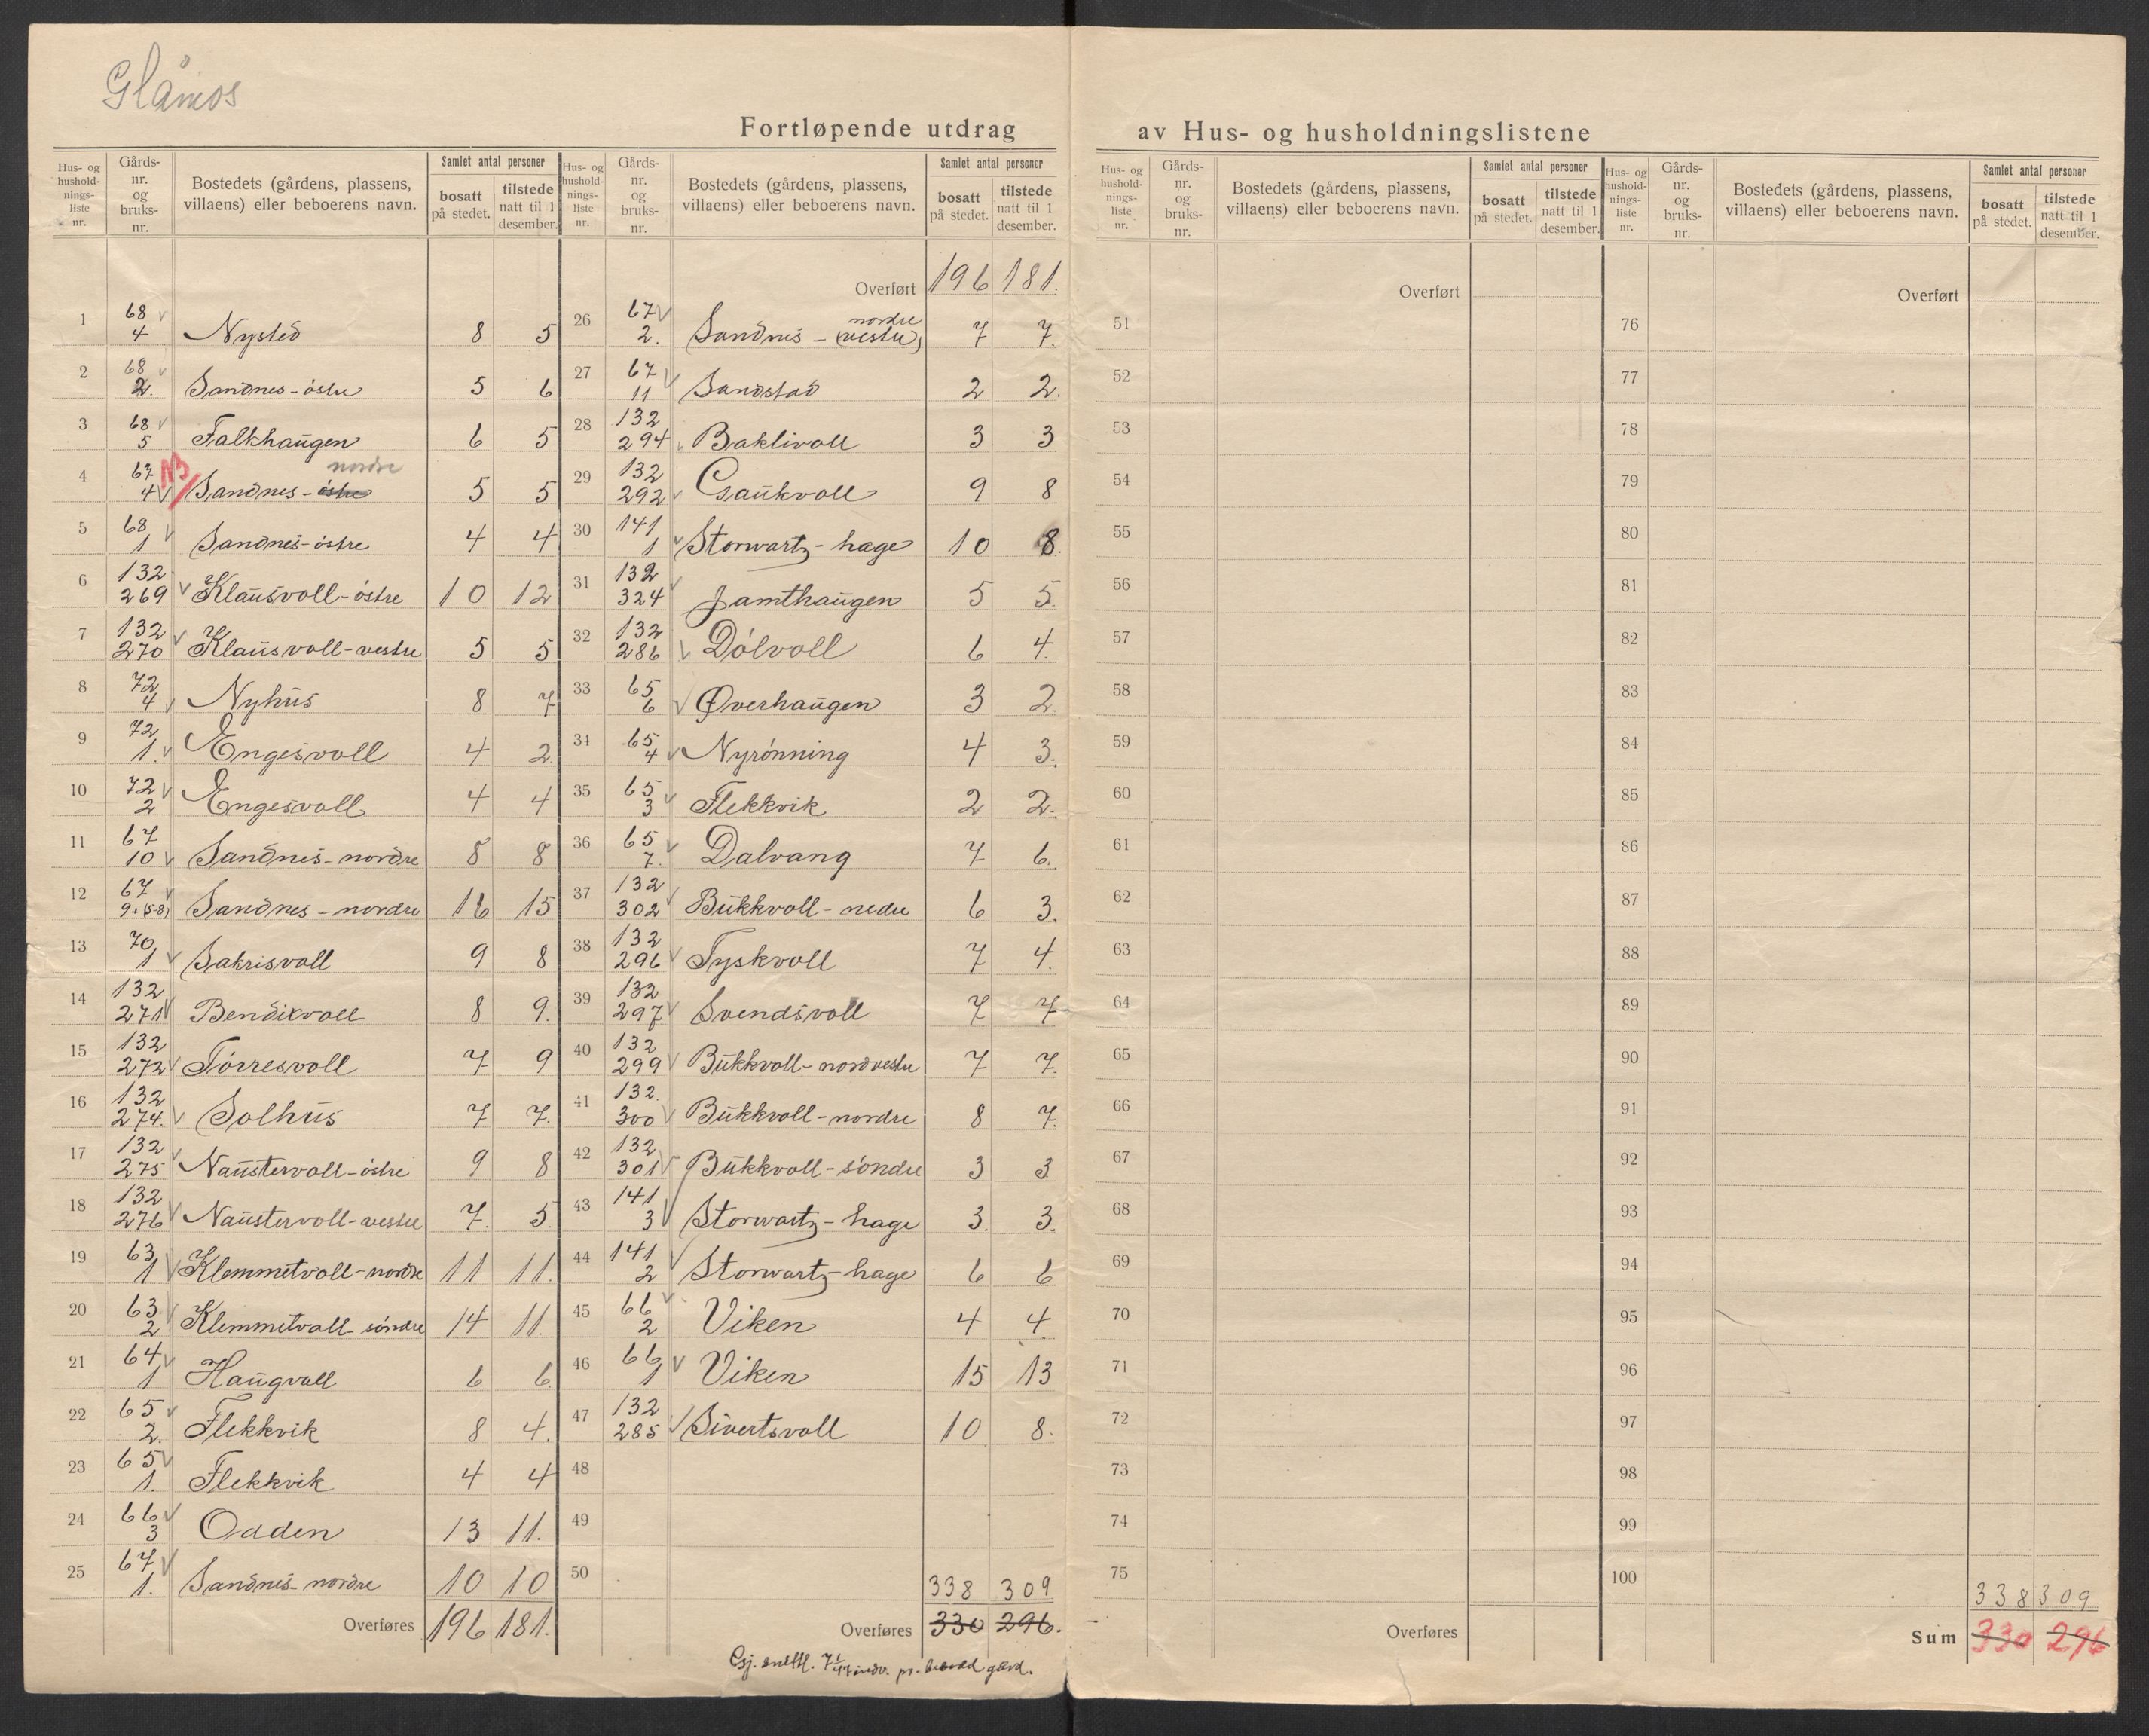 Glåmos
Fortløpende utdrag av Hus- og husholdningslistene
Hus- og husholdnings-liste nr. | Gårds-nr. og bruks-nr. | Bostedets (gårdens, plassens, villaens) eller beboerens navn. | Samlet antal personer | bosatt på stedet. | tilstede natt til 1 desember.
1 68 4 Nysted 8 5
2 68 2. Sandnes-östre 5 6
3 68 5 Falkhaugen 6 5
4 67 4 NB Sandnes-östre nordre 5 5
5 68 1 Sandnes-östre 4 4
6 132 269 Klausvoll-östre 10 12
7 132 270 Klausvoll-vestre 5 5
8 72 4 Nyhus 8 7
9 72 1. Engesvoll 4 2
10 72 2 Engesvoll 4 4
11 67 10 Sandnes-nordre 8 8
12 67 9+(5-8) Sandnes-nordre 16 15
13 70 1 Sakrisvoll 9 8
14 132 271 Bendixvoll 8 9.
15 132 272 Törresvoll 7 9
16 132 274. Solhus 7 7.
17 132 275 Naustervoll-östre 9 8
18 132 276 Naustervoll-vestre 7. 5
19 63 1 Klemmetvoll-nordre 11 11.
20 63 2 Klemmetvoll-söndre 14 11.
21 64 1 Haugvoll 6 6
22 65 2. Flekkvik 8 4.
23 65 1. Flekkvik 4 4
24 66 3 Odden 13 11.
25 67 1. Sandnes-nordre 10 10
Overføres 196 181.
Hus- og husholdnings-liste nr. | Gårds-nr. og bruks-nr. | Bostedets (gårdens, plassens, villaens) eller beboerens navn. | Samlet antal personer | bosatt på stedet. | tilstede natt til 1 desember.
Overført 196 181.
26 67 2. Sandnes-(vestre) nordre 7 7.
27 67 11 Sandstad 2 2.
28 132 294 Baklivoll 3 3
29 132 292 Gaukvoll 9 8
30 141 1 Storwartz-hage 10 8.
31 132 324 Jamthaugen 5 5.
32 132 286 Dölvoll 6 4.
33 65 6 Øverhaugen 3 2
34 65 4 Nyrönning 4 3.
35 65 3 Flekkvik 2 2.
36 65 7. Dalvang 7 6.
37 132 302 Bukkvoll-nedre 6 3.
38 132 296 Tyskvoll 7 4.
39 132 297 Svendsvoll 7 7
40 132 299 Bukkvoll-nordvestre 7 7.
41 132. 300 Bukkvoll-nordre 8 7.
42 132 301 Bukkvoll-söndre 3 3
43 141 3 Storwartz-hage 3. 3.
44 141 2 Storwartz-hage 6 6
45 66 2 Viken 4 4
46 66 1 Viken 15 13
47 132 285 Sivertsvoll 10 8.
48
49
50
338 309
Overføres 330 296.
Gj.snittl. 7 1/47 indv. pr. bebodd gård.
Hus- og husholdnings-liste nr. | Gårds-nr. og bruks-nr. | Bostedets (gårdens, plassens, villaens) eller beboerens navn. | Samlet antal personer | bosatt på stedet. | tilstede natt til 1 desember.
Overført
51
52
53
54
55
56
57
58
59
60
61
62
63
64
65
66
67
68
69
70
71
72
73
74
75
Overføres
Hus- og husholdnings-liste nr. | Gårds-nr. og bruks-nr. | Bostedets (gårdens, plassens, villaens) eller beboerens navn. | Samlet antal personer | bosatt på stedet. | tilstede natt til 1 desember.
Overført
76
77
78
79
80
81
82
83
84
85
86
87
88
89
90
91
92
93
94
95
96
97
98
99
100
338 309
Sum 330 296